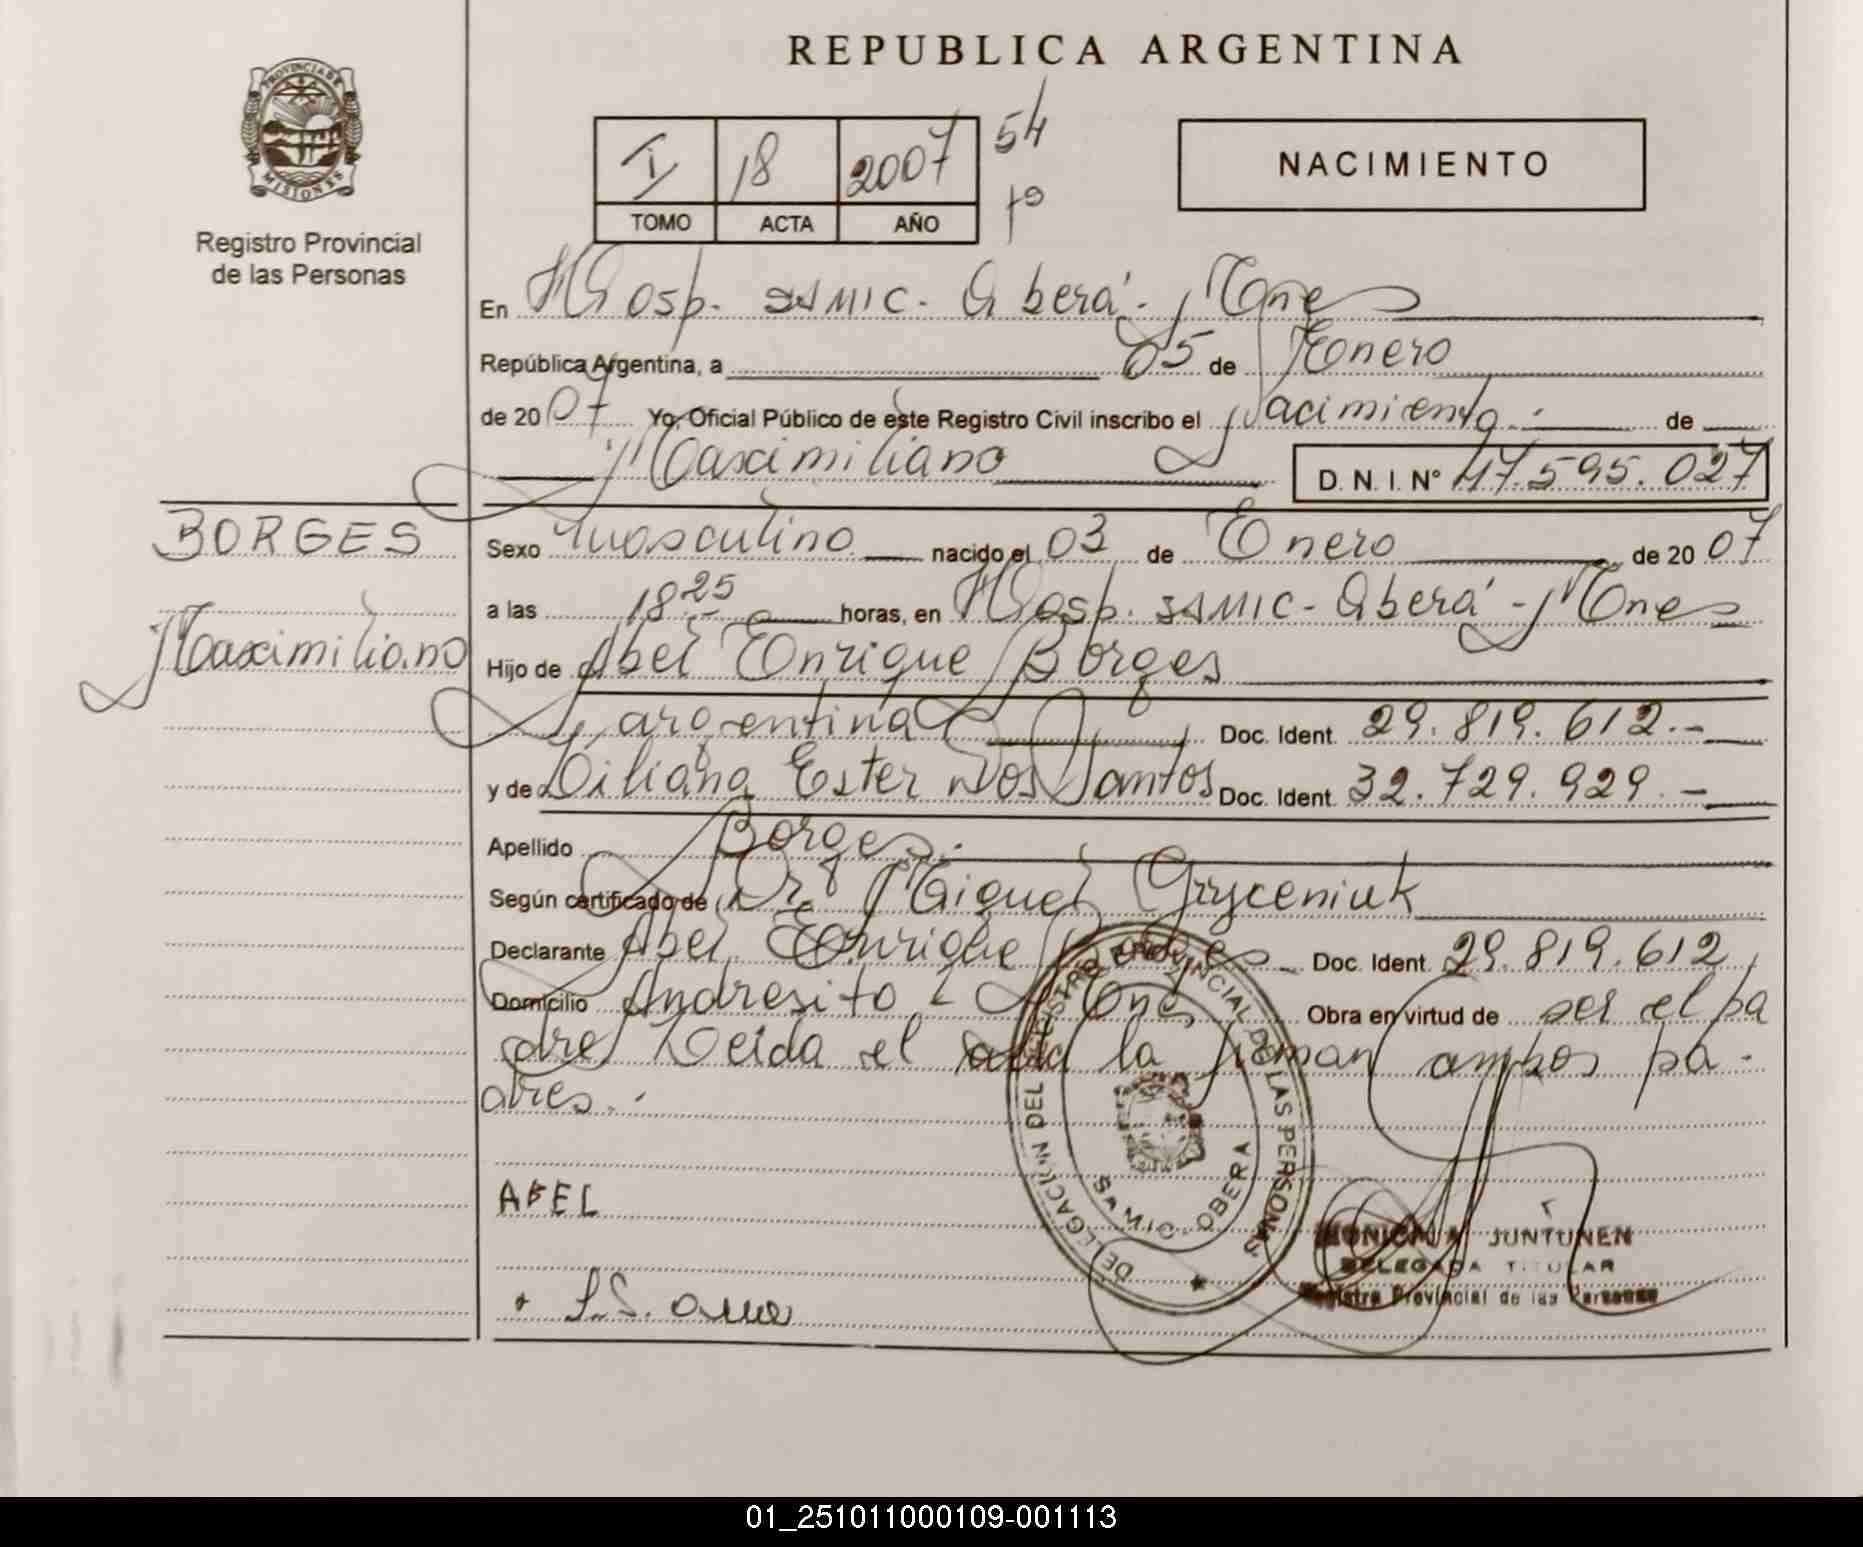 REPUBLICA ARGENTINA
PROVINCIA DE MISIONES
Registro Provincial
de las Personas
I 18 2007 54
TOMO ACTA AÑO
NACIMIENTO
En Hosp. SAMIC - Oberá - Mnes
República Argentina, a 05 de Enero
de 2007 Yo, Oficial Público de este Registro Civil inscribo el Nacimiento - de
Maximiliano D.N.I. Nº 47.595.027
BORGES
Maximiliano
Sexo Masculino nacido el 03 de Enero de 2007
a las 18 25 horas, en Hosp. SAMIC - Oberá - Mnes
Hijo de Abel Enrique Borges
argentina Doc. Ident. 29.819.612.-
y de Liliana Ester Dos Santos Doc. Ident. 32.729.929.-
Apellido Borges.
Según certificado de Dr. Miguel Gryceniuk
Declarante Abel Enrique Borges Doc. Ident. 29.819.612
Domicilio Andresito - Mnes Obra en virtud de ser el pa
dre Leida el acta la firman ambos pa-
dres.-
DELEGACION DEL REGISTRO PROVINCIAL DE LAS PERSONAS
SAMIC - OBERA
ABEL
MONICA A. JUNTUNEN
DELEGADA TITULAR
Registro Provincial de las Personas
01_251011000109-001113